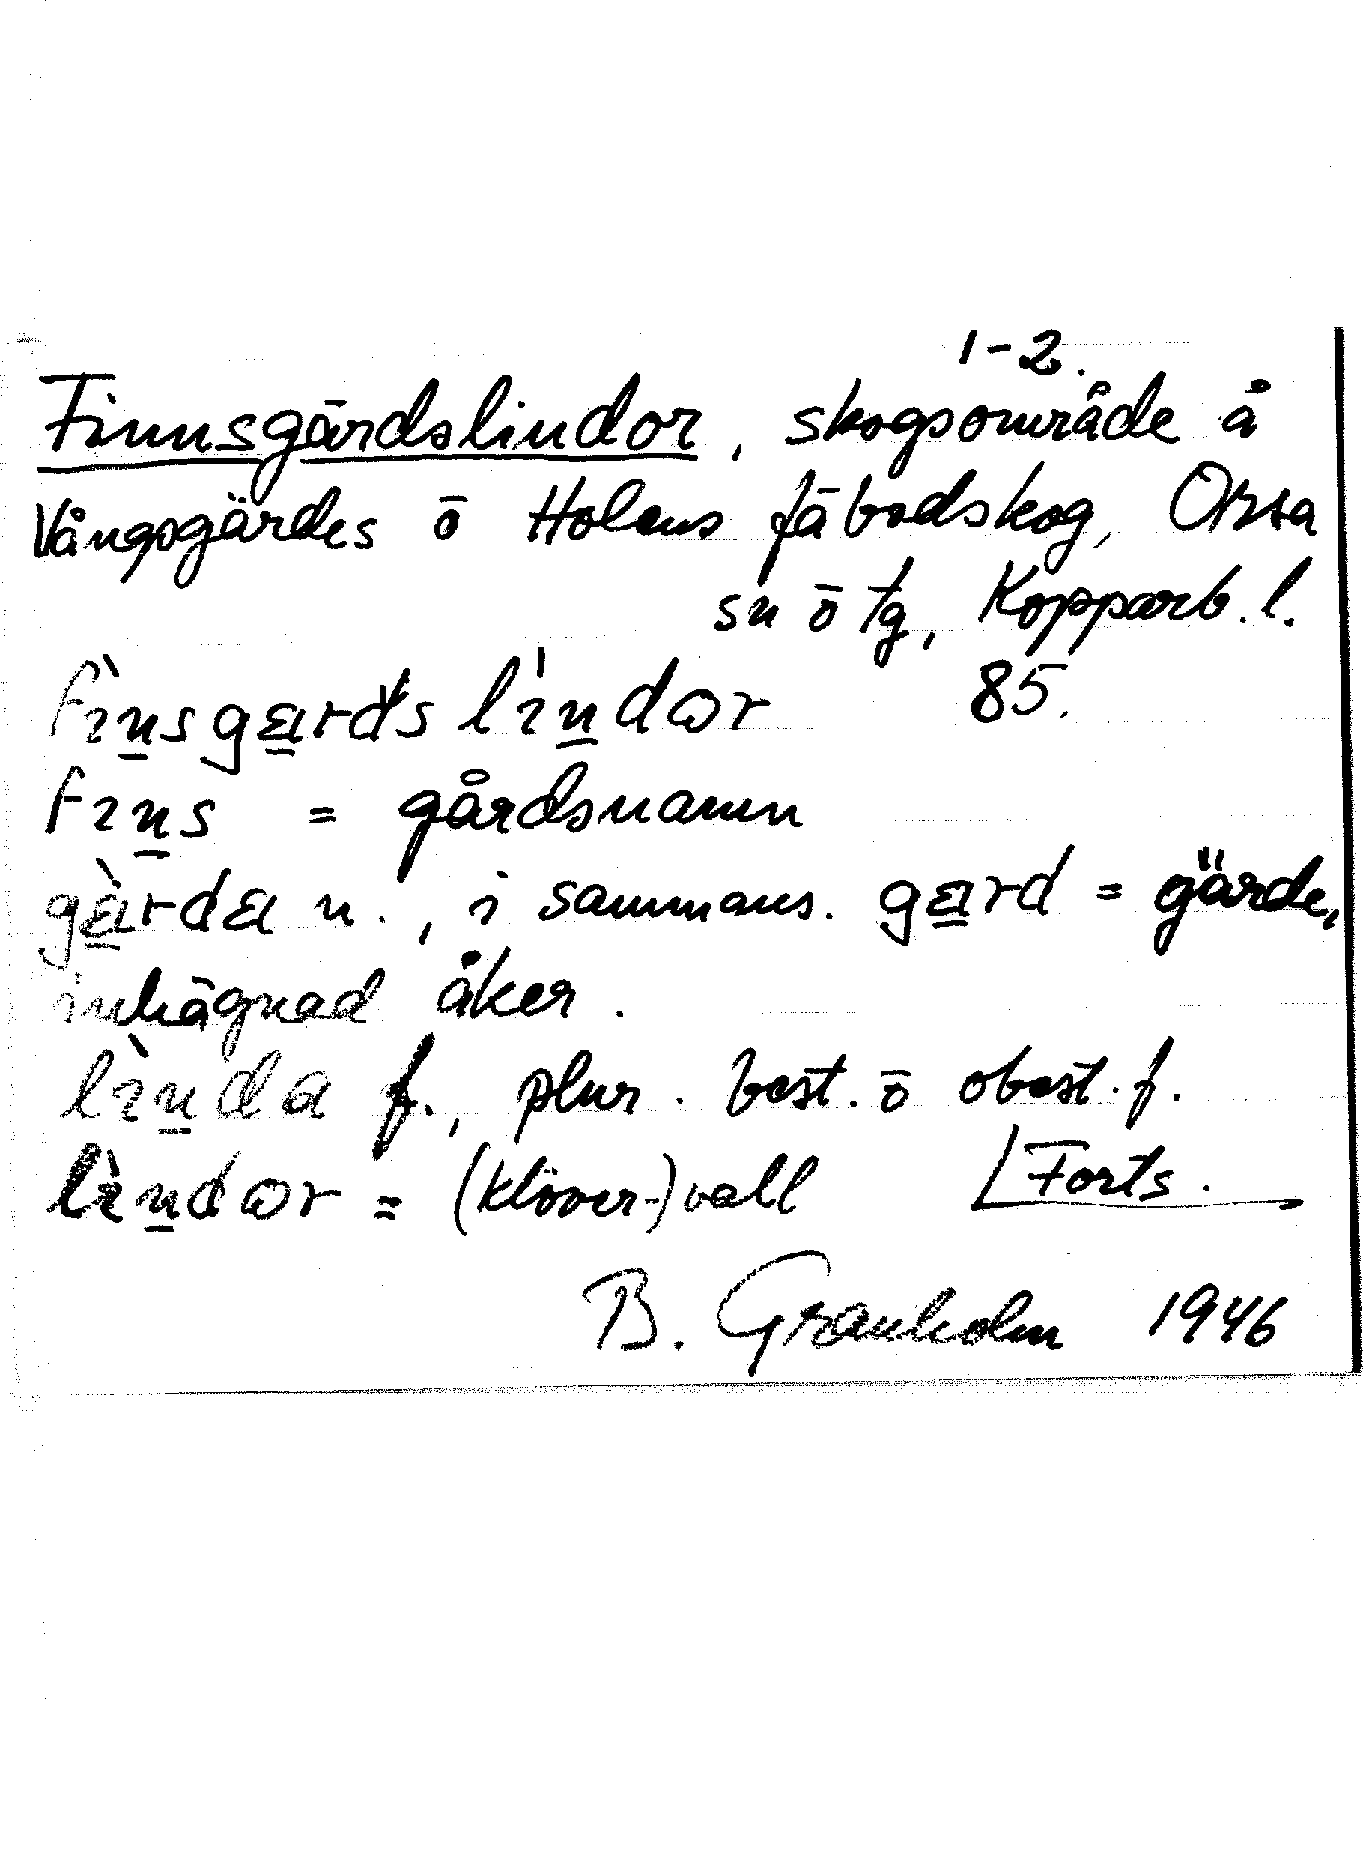 1-2.
Finnsgärdslindor, skogsområde å
Vångsgärdes o Holens fäbodskog, Orsa
sn o tg, Kopparb. l.
fìnsgærds lìndωr 85.
fıns = gårdsnamn
gæ̀rdæ n., i sammans. gærd = gärde,
inhägnad åker.
lìnda f., plur. best. o obest. f.
lìndωr = (klöver-)vall Forts.
B. Granholm 1946